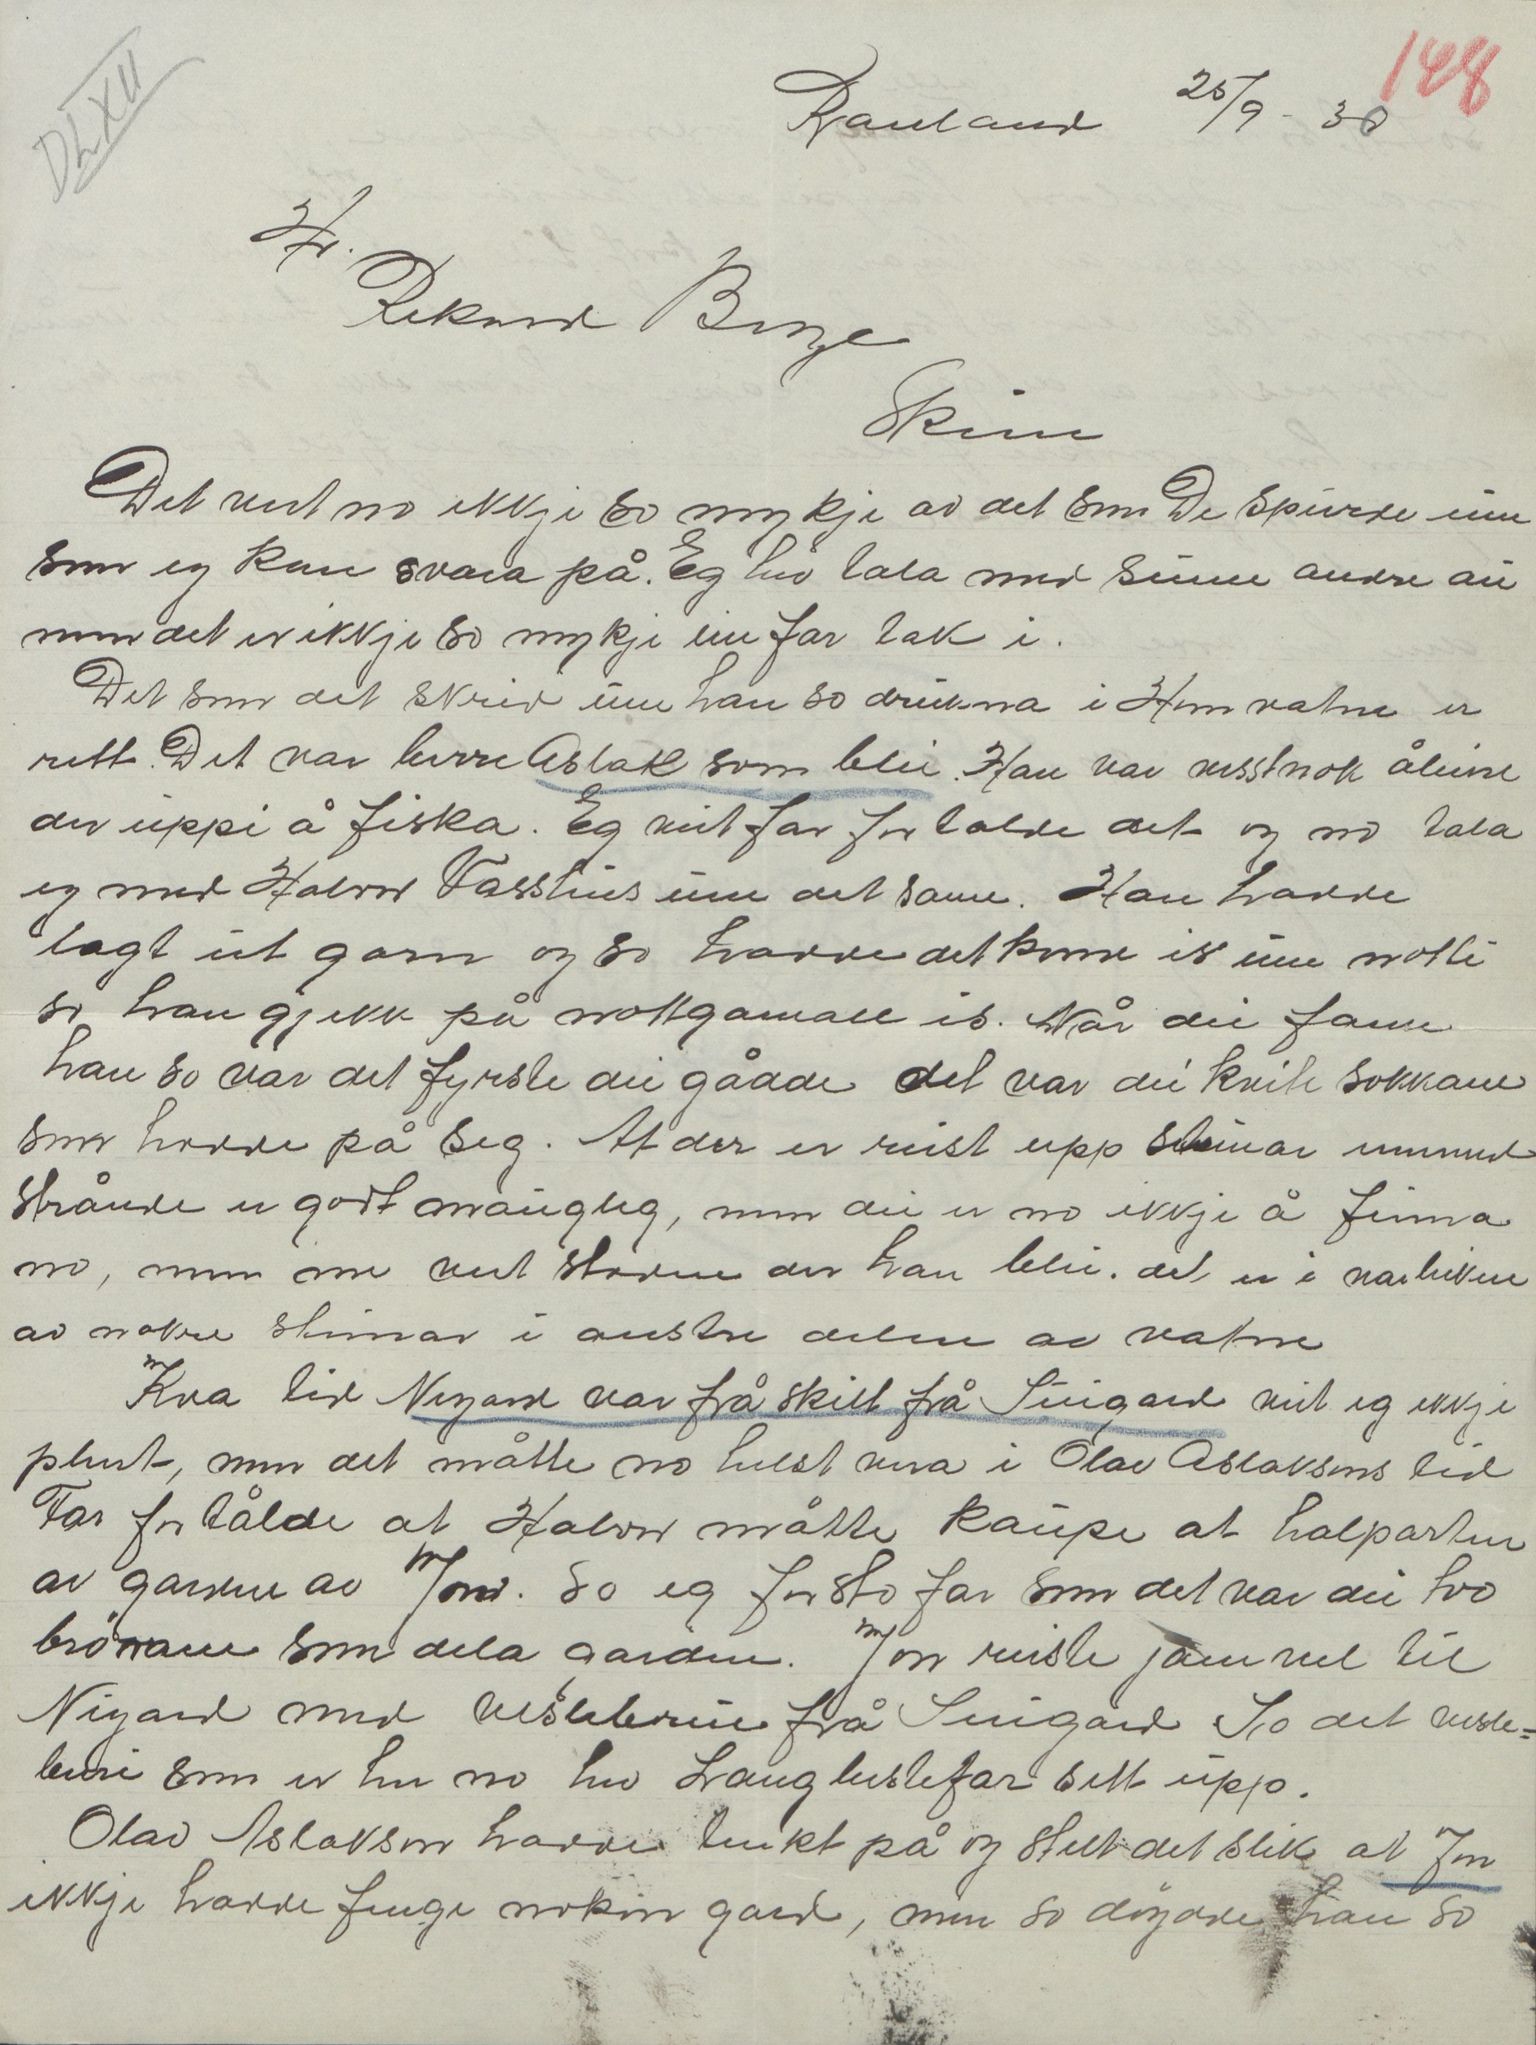 DLXII
148
Rauland 25/9 - 30
Hr.
Rikard Berge
Skien
Det vert no ikkje so mykje av det som De spurde um
som eg kan svara på. Eg hev tala med sume andre au
men det er ikkje so mykje ein far tak i.
Det som det skreid um han so drukna i Hemvatne er
rett. Det var berre Aslak som blei. Han var visstnok åleine
der uppi å fiska. Eg veit far fortalde det og no tala
eg med Halvor Vasstius um det same. Han hadde
lagt ut garn og so hadde det kome is um notti
so han gjekk på nottgamall is. Når dei fann
han so var det fyrste dei gådde det var dei kvite sokkane
som hadde på seg. At der er reist upp steinar ummed
strånde er godt mauigleg, men dei er no ikkje å finna
no, men me veit staden der han blei. det er i narleiken
av nokre steinar i austre delen av vatne
Kva tid Nigard var fråskilt frå Suigard veit eg ikkje
plent, men det måtte no helst vera i Olav Aslaksons tid
Far fortålde at Halvor måtte kaupe at halparten
av garden av Jon. So eg forsto far som det var dei tvo
brørane som dela garden. Jon reiste jamvel til
Nigard med vesleburi frå Suigard So det vesle=
buri som er her no hev Haugleslefar sett upp.
Olav Aslakson hadde tenkt på og stelt det slik at Jon
ikkje hadde fenge nokon gard, men so døydde han so